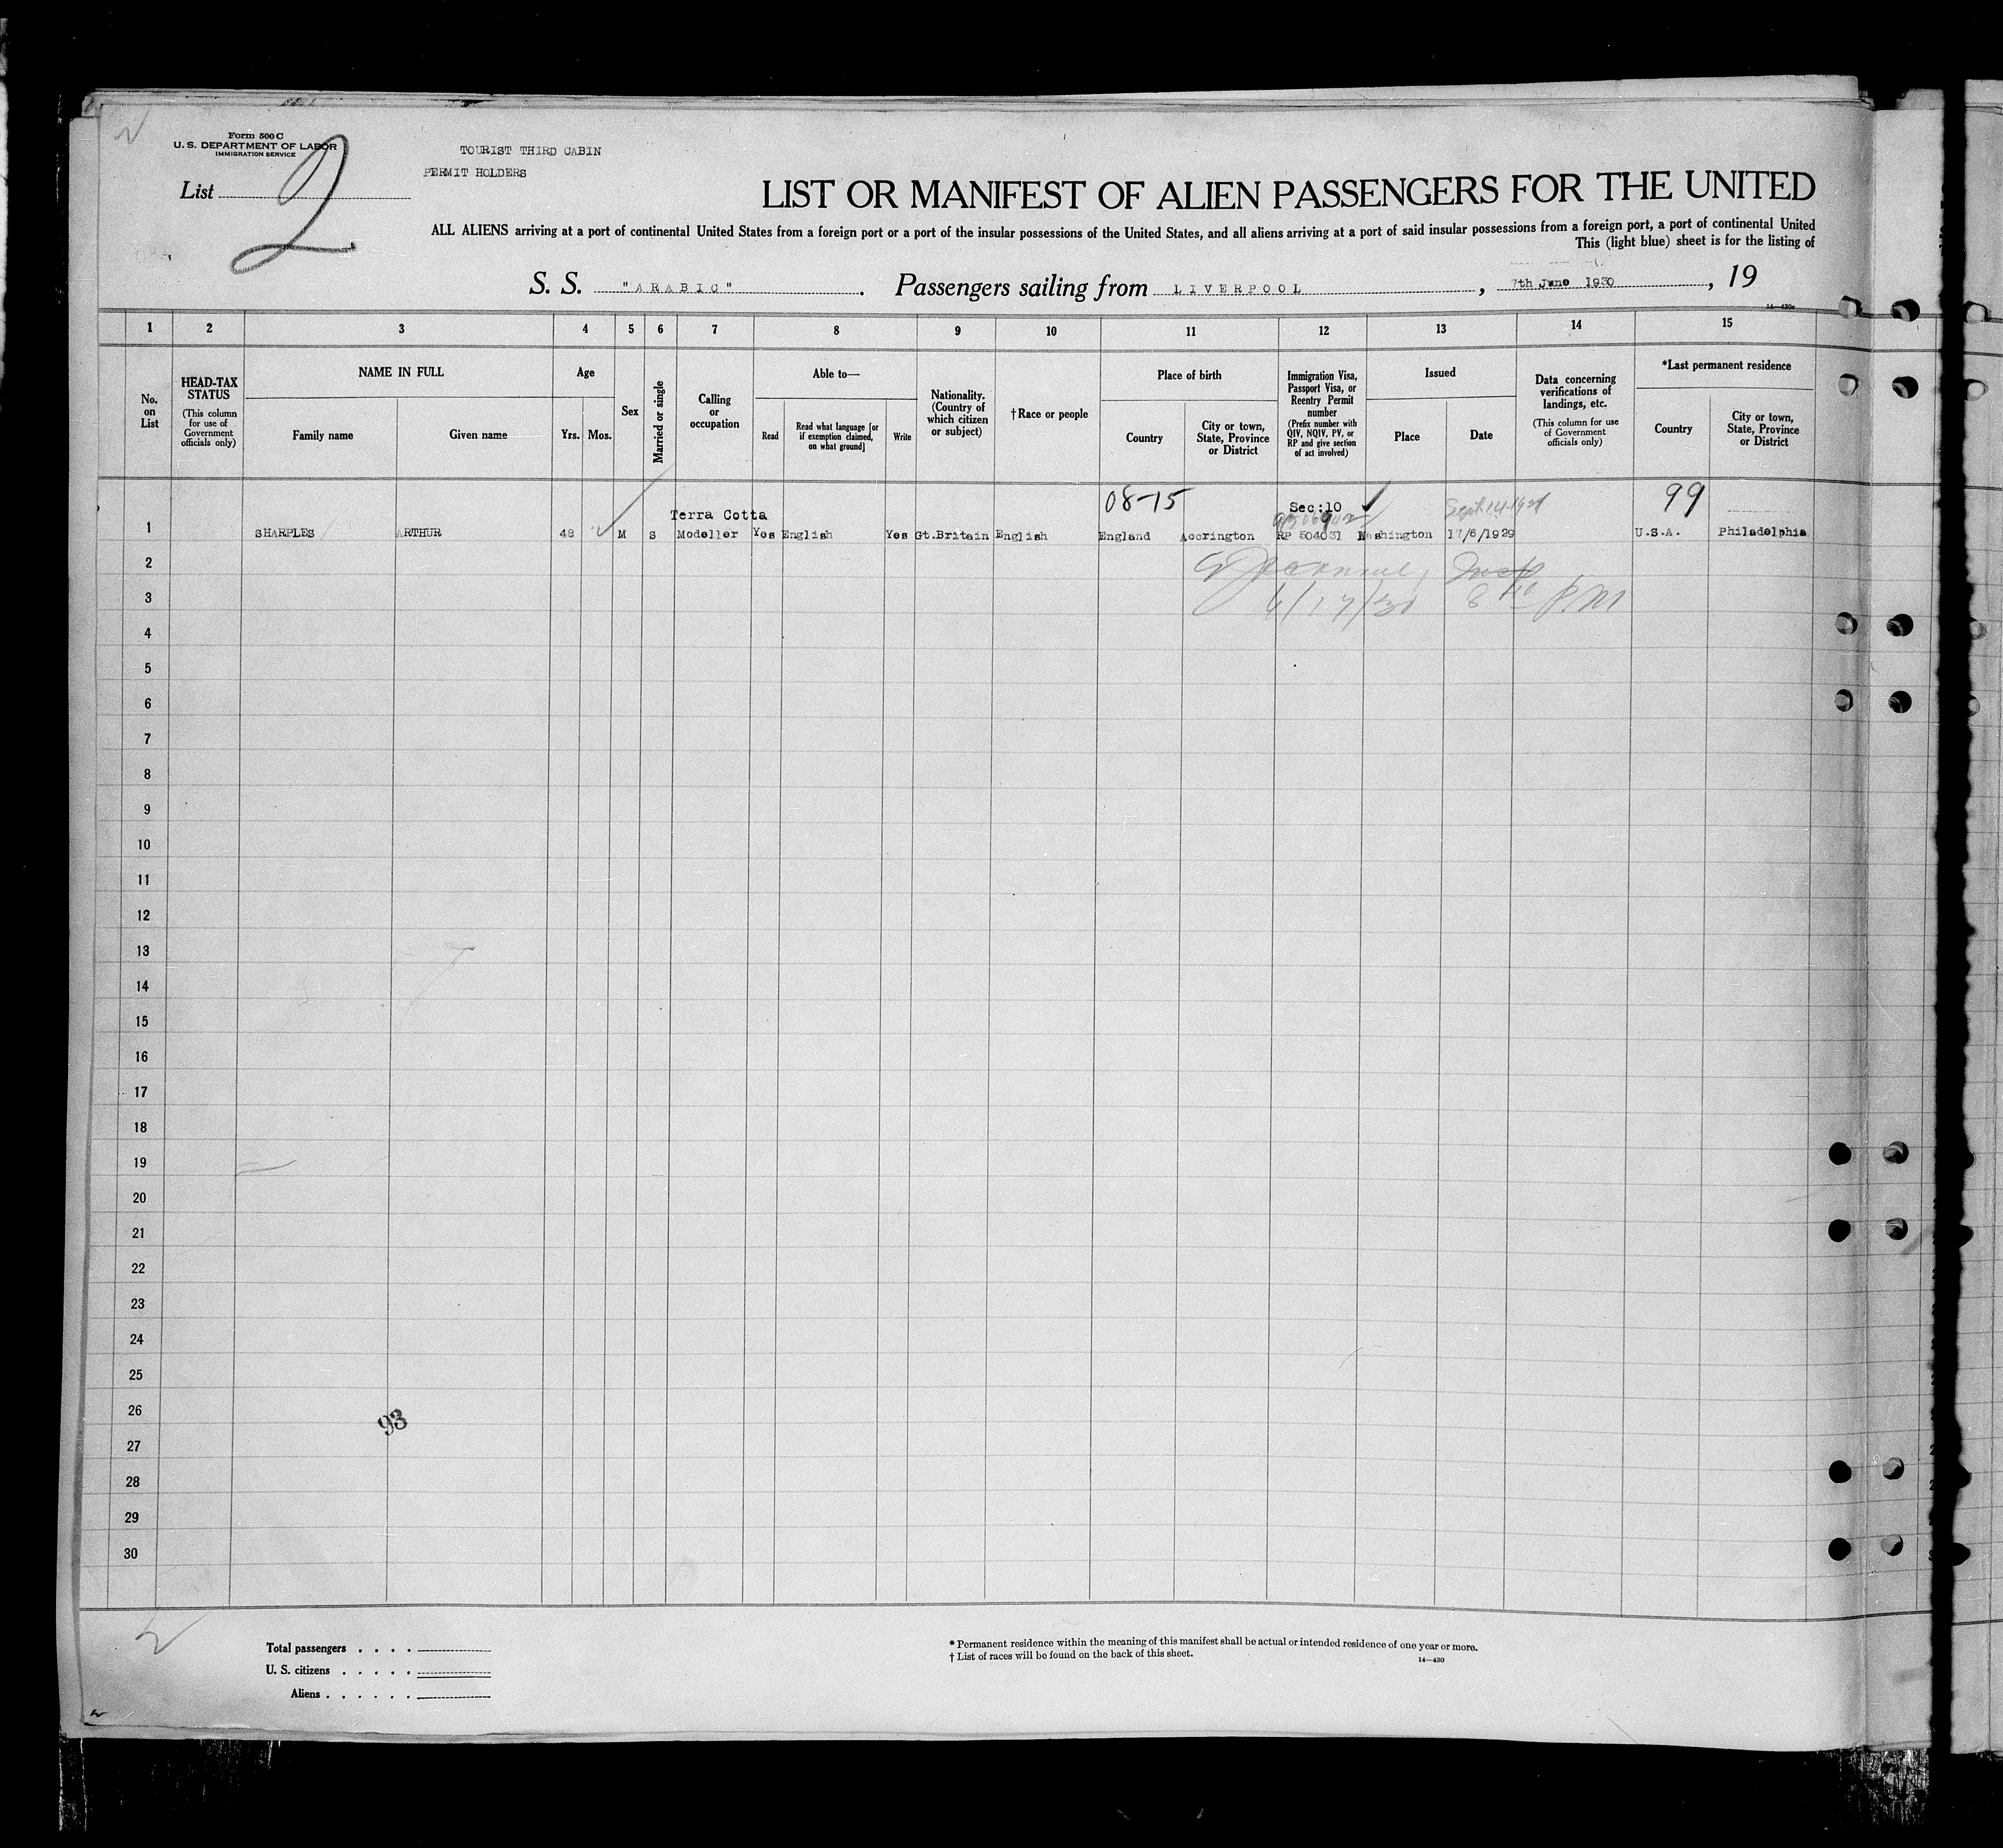 Form 500 C
U. S. DEPARTMENT OF LABOR
IMMIGRATION SERVICE
List 2
TOURIST THIRD CABIN
PERMIT HOLDERS
LIST OR MANIFEST OF ALIEN PASSENGERS FOR THE UNITED
ALL ALIENS arriving at a port of continental United States from a foreign port or a port of the insular possessions of the United States, and all aliens arriving at a port of said insular possessions from a foreign port, a port of continental United
This (light blue) sheet is for the listing of
S. S. "ARABIC" . Passengers sailing from LIVERPOOL , 7th June 1930 , 19
14—430a
1 2 3 4 5 6 7 8 9 10 11 12 13 14 15
No. on List
HEAD-TAX STATUS
(This column for use of Government officials only)
NAME IN FULL
Family name
Given name
Age
Yrs.
Mos.
Sex
Married or single
Calling or occupation
Able to—
Read
Read what language [or if exemption claimed, on what ground]
Write
Nationality. (Country of which citizen or subject)
†Race or people
Place of birth
Country
City or town, State, Province or District
Immigration Visa, Passport Visa, or Reentry Permit number
(Prefix number with QIV, NQIV, PV, or RP and give section of act involved)
Issued
Place
Date
Data concerning verifications of landings, etc.
(This column for use of Government officials only)
*Last permanent residence
Country
City or town, State, Province or District
08-15 99
Sec:10
Terra Cotta
1 SHARPLES ARTHUR 48 M S Modeller Yes English Yes Gt.Britain English England Accrington RP 504031 Washington 17/6/1929 U.S.A. Philadelphia
2
3 6/17/30 8 40 P.M
4
5
6
7
8
9
10
11
12
13
14
15
16
17
18
19
20
21
22
23
24
25
26
93
27
28
29
30
Total passengers . . . .
U. S. citizens . . . . .
Aliens . . . . . .
* Permanent residence within the meaning of this manifest shall be actual or intended residence of one year or more.
† List of races will be found on the back of this sheet.
14—430